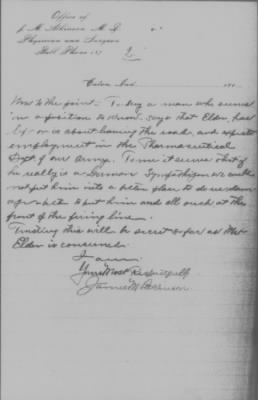 Office of
J. M. Atkinson M. D.
Physician and Surgeon
Bell Phone 157
2
Eaton Ind. 191
Now to the point. To day a man who seems
in a position to know says that Elder, has
left or is about leaving the road, and expects
employment in the Pharmaceutical
Dept of our Army. To me it seems that if
he really is a German Sympathizer we could
not put him into a better place to do us dam
age but to put him and all such at the
front of the firing line.
Trusting this will be secret so far as Mr
Elder is concerned.
I am
Yours Most Respectfully
James M Atkinson